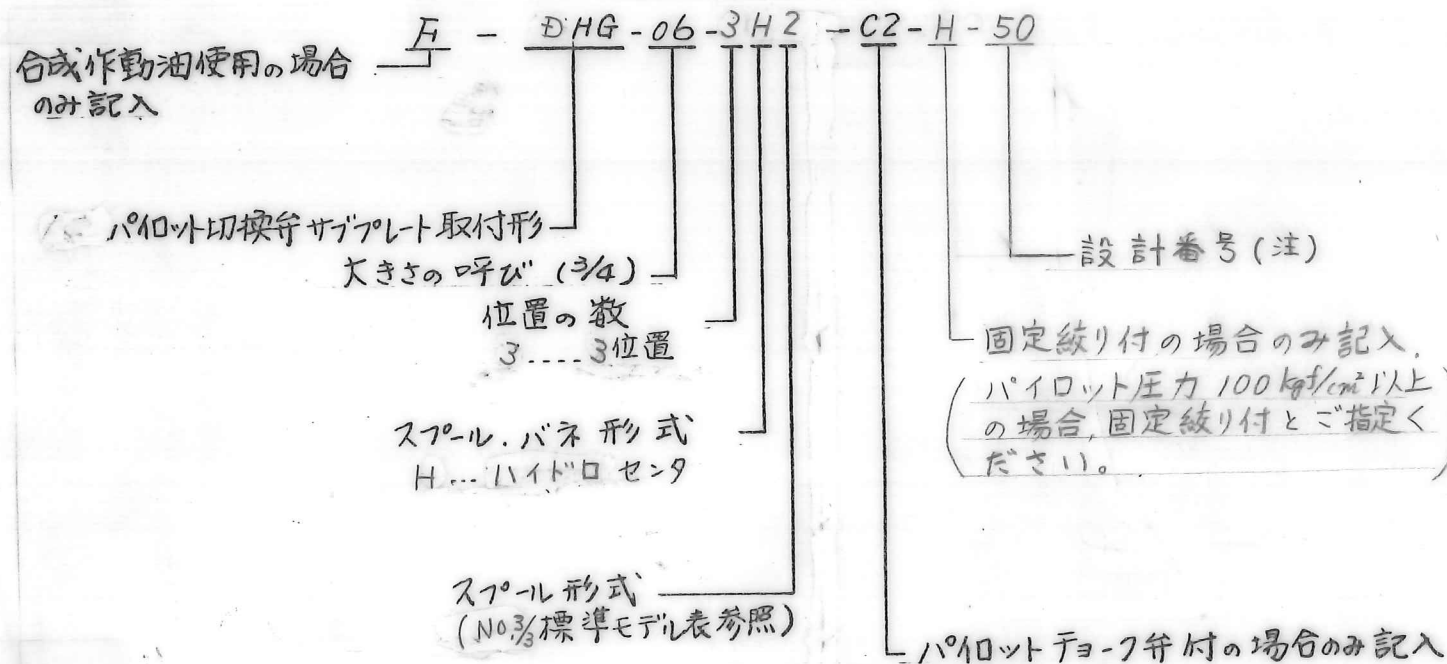 F - DHG - 06 - 3 H 2 - C2 - H - 50
合成作動油使用の場合
のみ記入
パイロット切換弁サブプレート取付形
大きさの呼び (3/4)
位置の数
3....3位置
スプール.バネ形式
H...ハイドロセンタ
スプール形式
(NO.3/3標準モデル表参照)
設計番号(注)
固定絞り付の場合のみ記入.
(パイロット圧力 100 kgf/cm² 以上
の場合,固定絞り付とご指定く
ださい。)
パイロットチョーク弁付の場合のみ記入